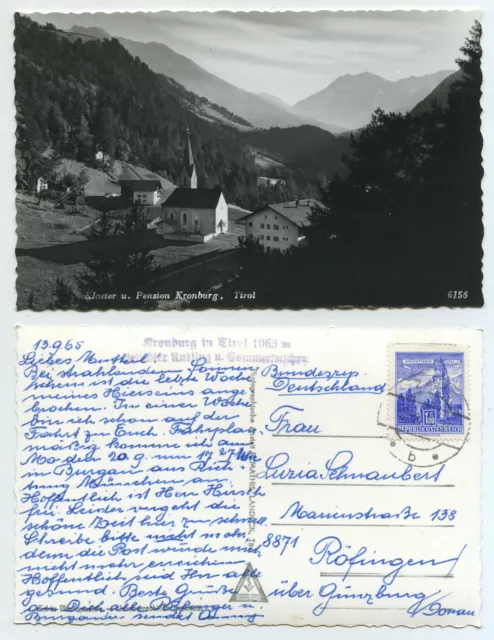 Kloster u. Pension Kronburg, Tirol
6156
13.9.65
Kronburg in Tirol 1063 m
Ausflug u. Sommerfrische
Liebes
Bei strahlendem Sonnen
schein ist die letzte Woche
meines Hierseins ange
brochen. In einer Woche
bin ich schon auf der
Fahrt zu Euch. Fahrplan
mäßig komme ich am
Mo. den 20.9. um 17.27 Uhr
in Burgau aus Rich
tung München an.
Hoffentlich ist Herr Hirsch
frei. Leider vergeht die
schöne Zeit hier zu schnell.
Schreibe bitte nicht mehr
denn die Post würde mich
nicht mehr erreichen
Hoffentlich seid Ihr alle
gesund. Beste Grüße
an Dich alle
Burgauer sendet
Bundesrep.
Deutschland
REPUBLIK ÖSTERREICH
Frau
Luzia Schnaubert
Marienstraße 138
8871
Röfingen
über Günzburg
/Donau